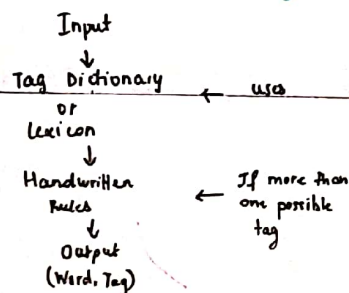 Input
↓
Tag Dictionary ← uses
or
Lexicon
↓
Handwritten ← If more than
Rules one possible
↓ tag
Output
(Word, Tag)